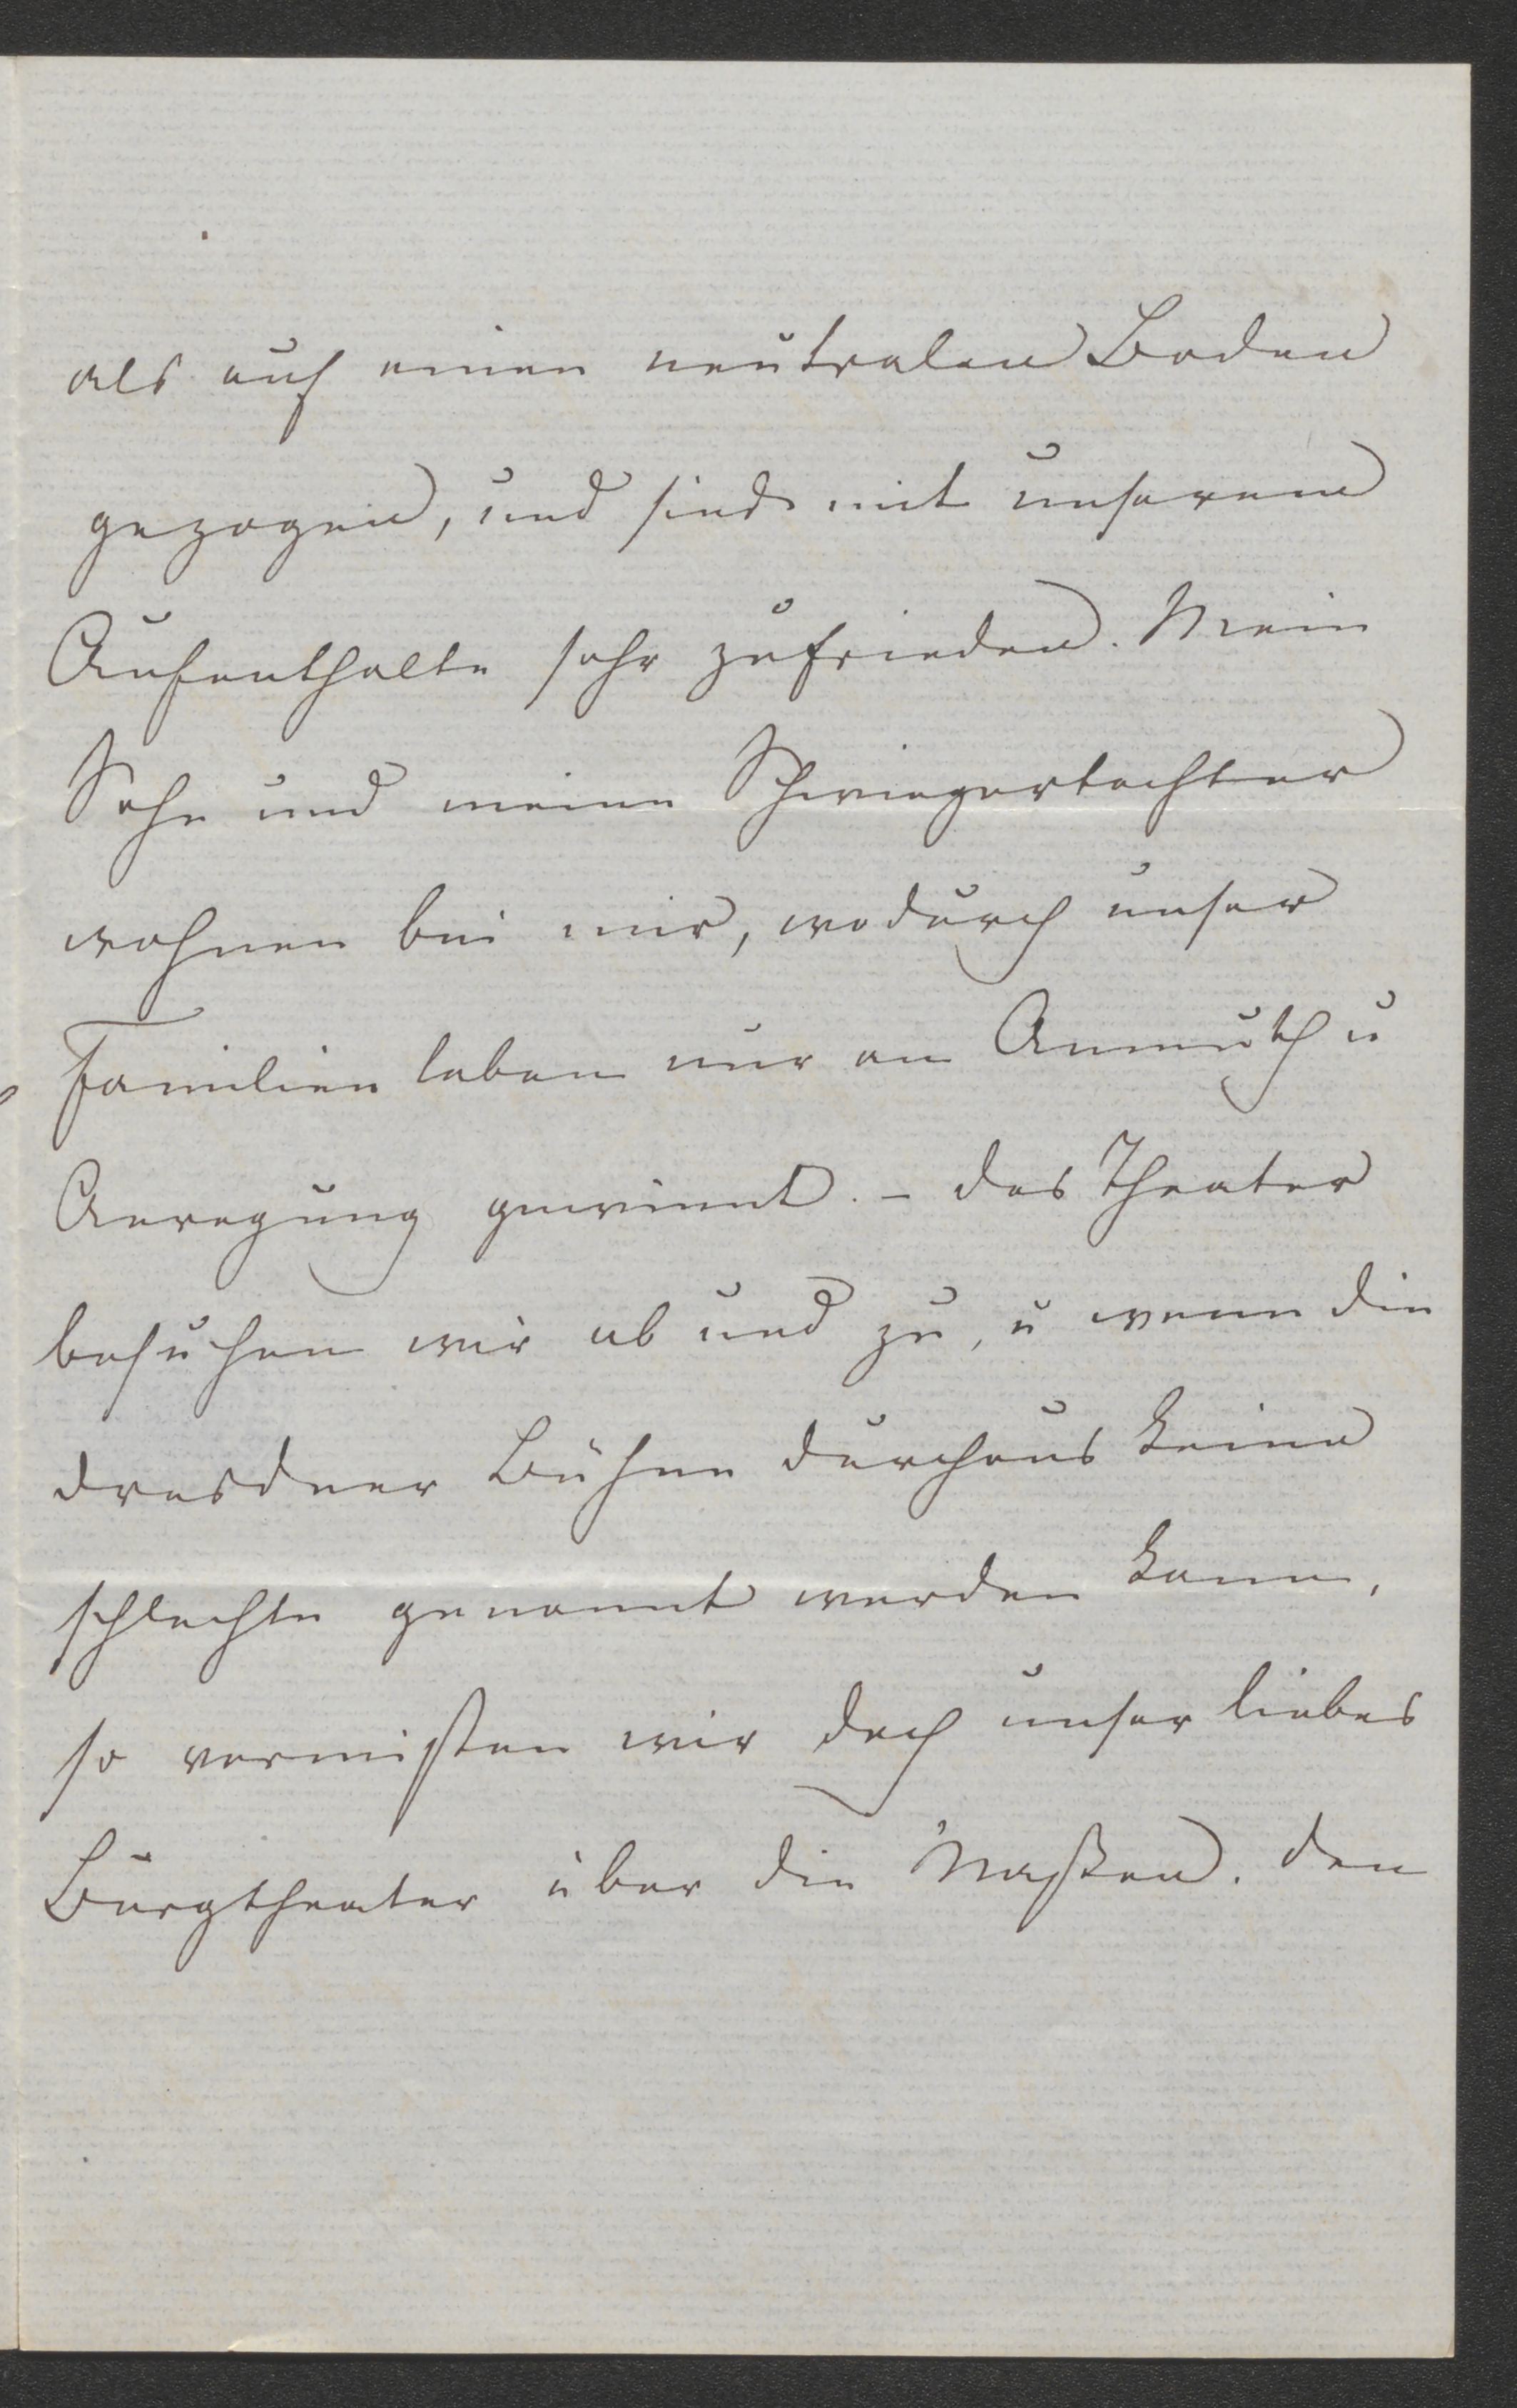 als auf einen neutralen Boden
gezogen, und sind mit unserem
Aufenthalte sehr zufrieden. Mein
Sohn und meine Schwiegertochter
wohnen bei mir, wodurch unser
Familien leben nur an Anmuth u
Anregung gewinnt. – das Theater
besuchen wir ab und zu, u wenn die
dresdner Bühne durchaus keine
schlechte genannt werden kann,
so vermißen wir doch unser liebes
Burgtheater über die Maßen. den